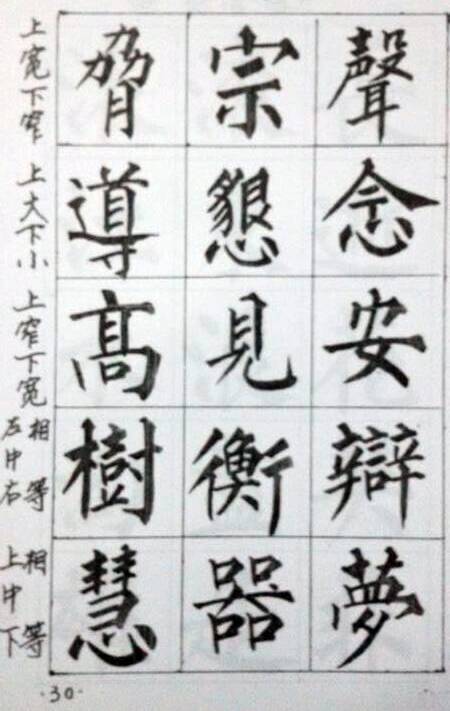 上宽下窄
脅 宗 聲
上大下小
導 懇 念
上窄下宽
髙 見 安
左中右相等
樹 衡 辯
上中下相等
慧 器 夢
·30·